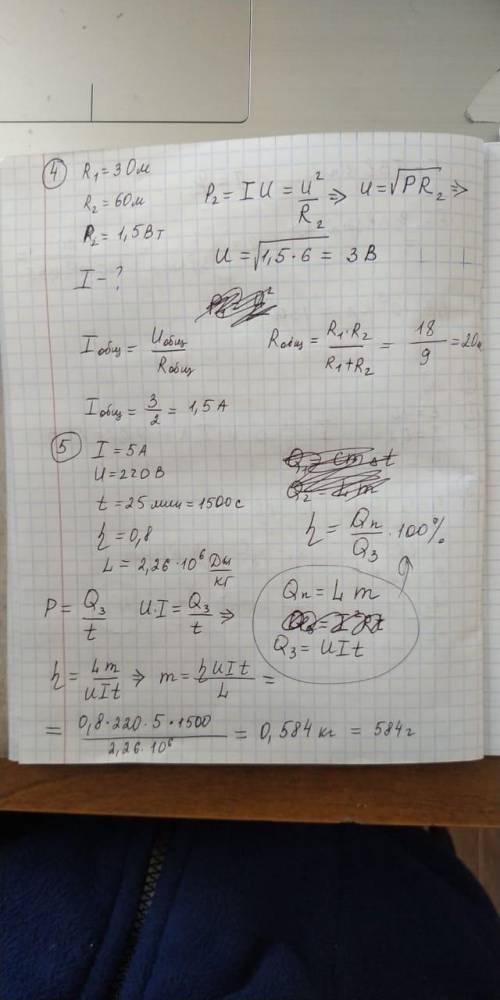 4
R₁ = 3 Ом
R₂ = 6 Ом
P₂ = 1,5 Вт
I - ?
P₂ = I U = U²/R₂ ⇒ U = √PR₂ ⇒
U = √1,5·6 = 3 В
I общ = U общ/R общ
R общ = R₁·R₂/R₁+R₂ = 18/9 = 2 Ом
I общ = 3/2 = 1,5 A
5
I = 5A
U = 220 В
t = 25 мин = 1500 с
η = 0,8
L = 2,26·10⁶ Дж/кг
η = Qп/Qз · 100%
P = Qз/t U·I = Qз/t ⇒
Qп = L m
Qз = UIt
η = Lm/UIt ⇒ m = ηUIt/L =
= 0,8·220·5·1500/2,26·10⁶ = 0,584 кг = 584 г